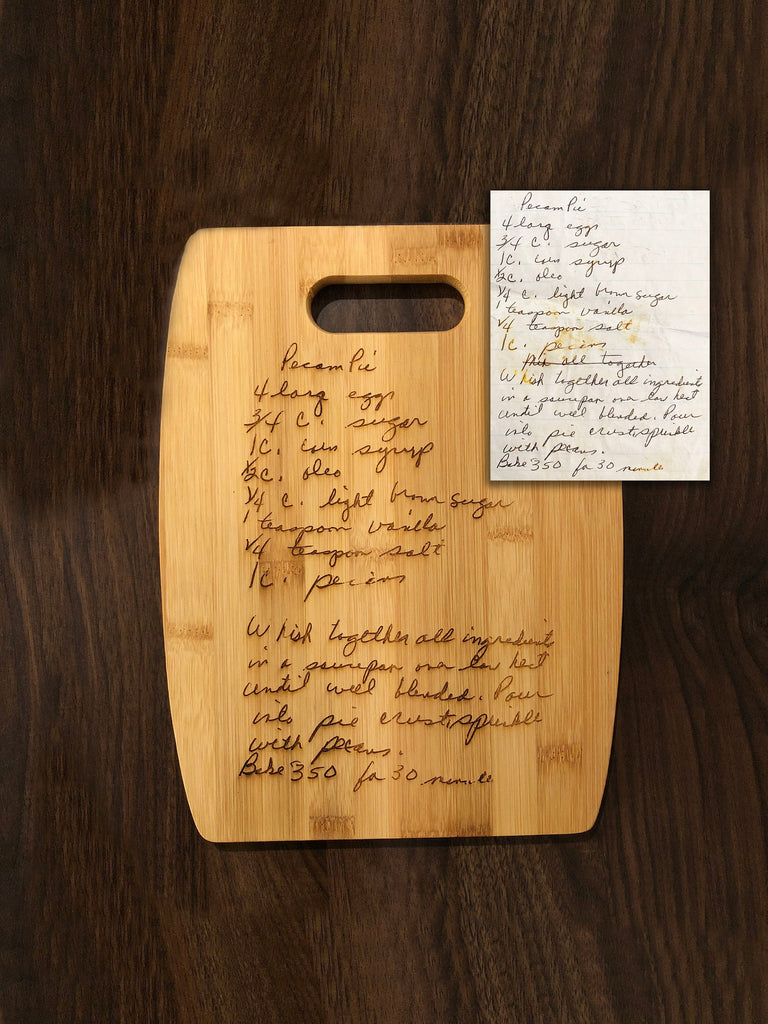 Pecan Pie
4 larg eggs
3/4 C. sugar
1C. corn syrup
1/2C. oleo
1/4 C. light brown sugar
1 teaspoon vanilla
1/4 teaspoon salt
1C. pecans
Whish together all ingredients
in a saucepan over low heat
until well blended. Pour
into pie crust, sprinkle
with pecans.
Bake 350 for 30 minute
Pecan Pie
4 larg eggs
3/4 C. sugar
1C. corn syrup
1/2C. oleo
1/4 C. light brown sugar
1 teaspoon vanilla
1/4 teaspoon salt
1C. pecans
all together
Whish together all ingredient
in a saucepan over low heat
until well blended. Pour
into pie crust, sprinkle
with pecans.
Bake 350 for 30 minute